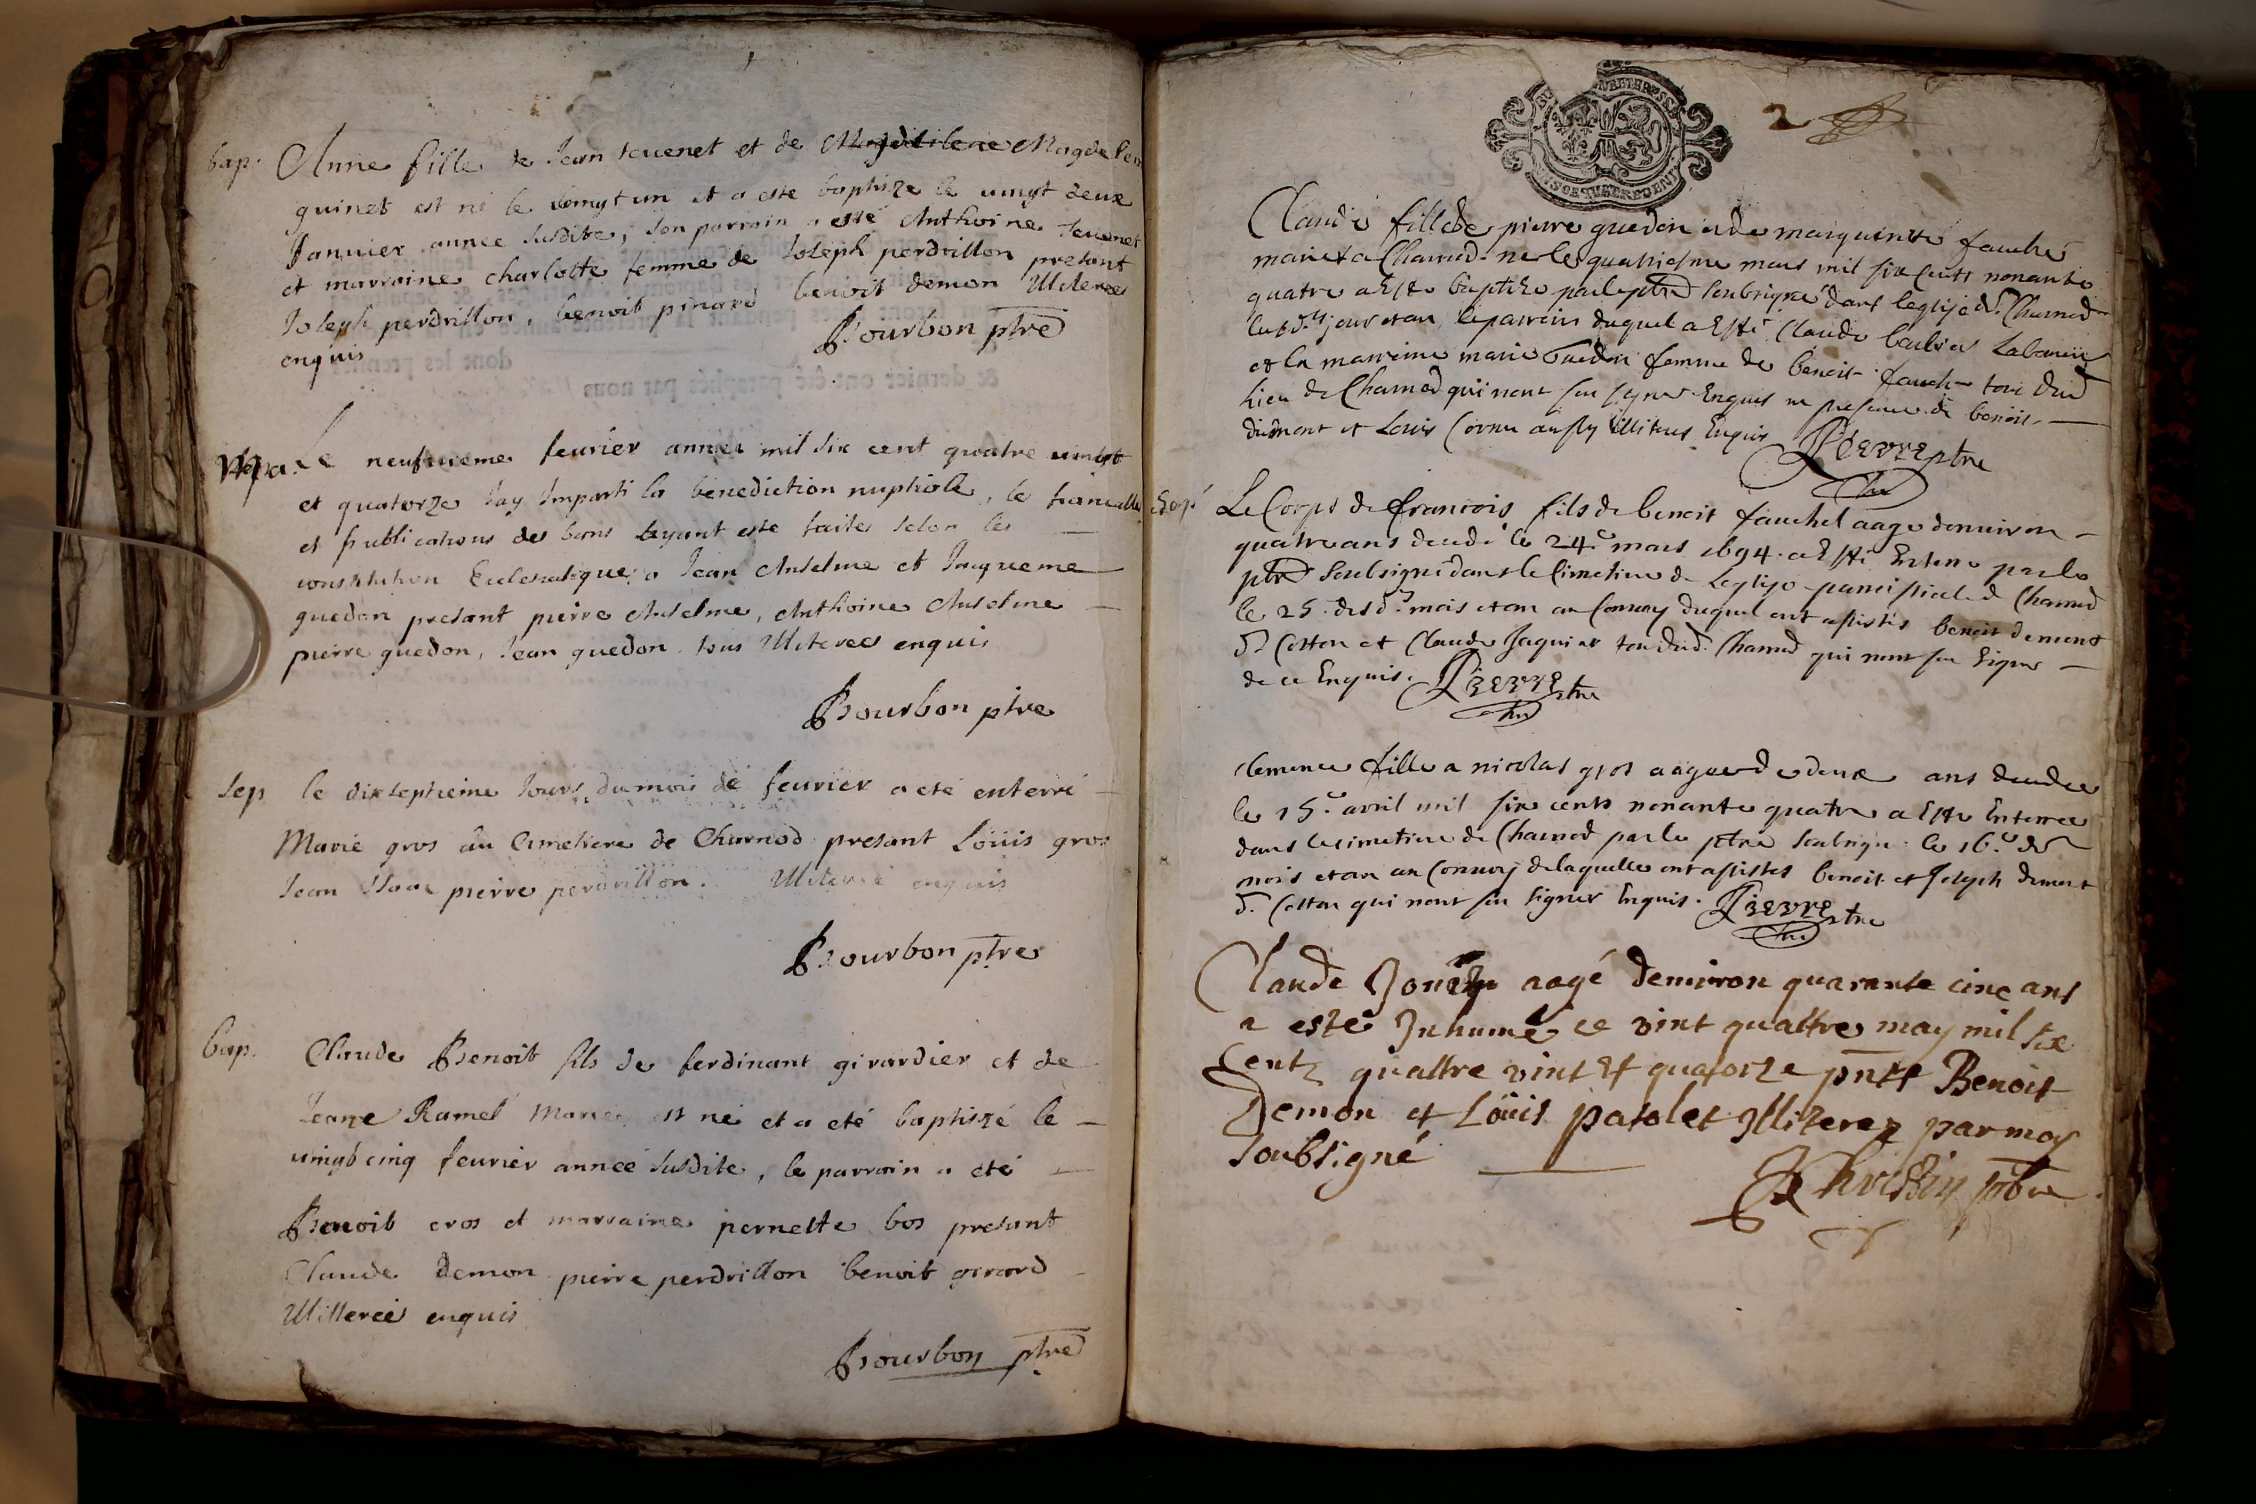 bap. Anne fille de Jean tevenet et de Magdelene Magdelene
quinet est né le vingt un et a esté baptize le vingt deux
Janvier année susdite, son parrain a esté Anthoine tevenet
et marraine charlotte femme de Joseph perdrillon presant
Joseph perdrillon, benoit pinard benoit demon Illiteres
enquis
Bourbon ptre
Le neufvieme fevrier année mil six cent quatre vingt
et quatorze Jay Imparti la benediction nuptiale, le fiancalle
et publications des bans ayant esté faites selon les
constitution Eclesiastique a Jean Anselme et Jaqueme
guedon presant pierre Anselme, Anthoine Anselme
pierre guedon, Jean guedon tous Illiterees enquis
Bourbon ptre
Sep le dixseptieme Jours du mois de fevrier a eté enterré
Marie gros au Cimetiere de Charnod presant Loüis gros
Jean pierre perdrillon. Illiteré enquis
Bourbon ptre
bap. Claude Benoit fils de ferdinant girardier et de
Jeane Ramel Mariés est né et a eté baptiszé le
vingt cinq fevrier année susdite, le parrain a eté
Benoit cros et marraine pernette bos presant
Claude demon pierre perdrillon benoit girard
Illitereé enquis
Bourbon ptre
2
Claudé fille de pierre guedon et de marguerite fauchet
mariet a Charnod ne le quatriesme mars mil six cents nonante
quatre a Esté baptize par le ptre soubsigné dans leglise d. Charnod
les d. jour et an, le parrain duquel a Esté Claude
et la marreine marie Guedon femme de benoit fauchet tous dud
lieu de Charnod qui nont seu signer Enquis en presence de benoit
dumont et Louis Cornu aussy Illiteres Enquis Pievre ptre
Sep Le Corps de francois fils de benoit fauchet aage denviron
quatre ans decedé le 24e mars 1694. a Esté Enterre par le
ptre Soubsigné dans le Cimetiere de Leglise parroissiale d Charnod
le 25. desd. mois et an au Convoy duquel ont assistés benoit demont
d. Cotton et Claude Jaquier tous dud. Charnod qui nont seu signer
de ce Enquis. Pievre ptre
clemence fille a nicolas gros aagee de deux ans decedee
le 15e avril mil six cents nonante quatre a Esté Enterree
dans le cimetiere de Charnod par le ptre soubsigne le 16e d.
mois et an au Convoy de laquelle ont assistes benoit et Joseph demont
d. Cotton qui nont seu signer Enquis. Pievre ptre
Claude aagé denviron quarante cinc ans
a esté Inhumé ce vint quattre may mil six
Centz quattre vint Et quatorze pnts Benoit
Demon et Loüis patolet Illiterez par moy
soubsigné